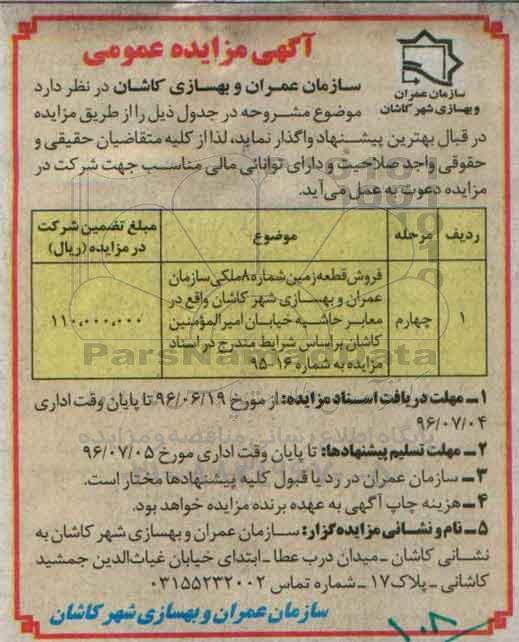 آگهی مزایده عمومی
سازمان عمران
و بهسازی شهر کاشان
سازمان عمران و بهسازی کاشان در نظر دارد
موضوع مشروحه در جدول ذیل را از طریق مزایده
در قبال بهترین پیشنهاد واگذار نماید، لذا از کلیه متقاضیان حقیقی و
حقوقی واجد صلاحیت و دارای توانائی مالی مناسب جهت شرکت در
مزایده دعوت به عمل می‌آید.
ردیف مرحله موضوع مبلغ تضمین شرکت
در مزایده (ریال)
فروش قطعه زمین شماره ۸ ملکی سازمان
عمران و بهسازی شهر کاشان واقع در
۱ چهارم معابر حاشیه خیابان امیرالمؤمنین ۱۱۰,۰۰۰,۰۰۰
کاشان براساس شرایط مندرج در اسناد
مزایده به شماره ۱۶-۹۵
ParsNamadData
۱ـ مهلت دریافت اسناد مزایده: از مورخ ۹۶/۰۶/۱۹ تا پایان وقت اداری
۹۶/۰۷/۰۴
۲ـ مهلت تسلیم پیشنهادها: تا پایان وقت اداری مورخ ۹۶/۰۷/۰۵
۳ـ سازمان عمران در رد یا قبول کلیه پیشنهادها مختار است.
۴ـ هزینه چاپ آگهی به عهده برنده مزایده خواهد بود.
۵ـ نام و نشانی مزایده‌گزار: سازمان عمران و بهسازی شهر کاشان به
نشانی کاشان ـ میدان درب عطا ـ ابتدای خیابان غیاث‌الدین جمشید
کاشانی ـ پلاک ۱۷ ـ شماره تماس ۰۳۱۵۵۲۳۲۰۰۲
سازمان عمران و بهسازی شهر کاشان